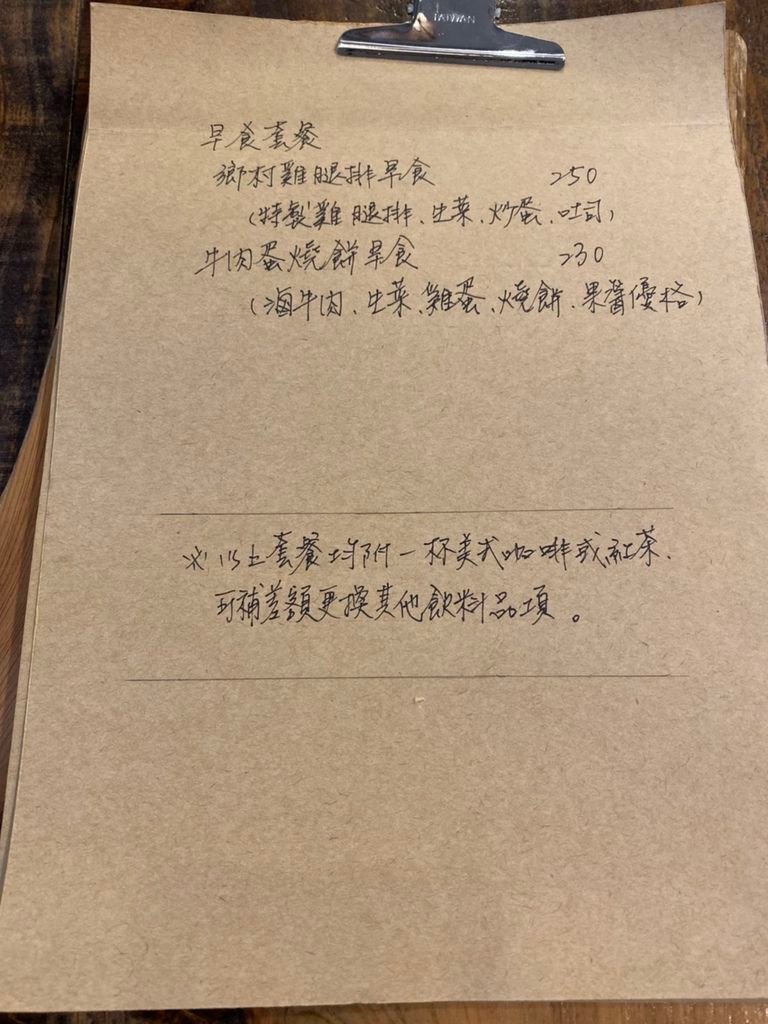 TAIWAN
早食套餐
鄉村雞腿排早食 250
(特製雞腿排、生菜、炒蛋、吐司)
牛肉蛋燒餅早食 230
(滷牛肉、生菜、雞蛋、燒餅、果醬優格)
※以上套餐均附一杯美式咖啡或紅茶、
可補差額更換其他飲料品項。